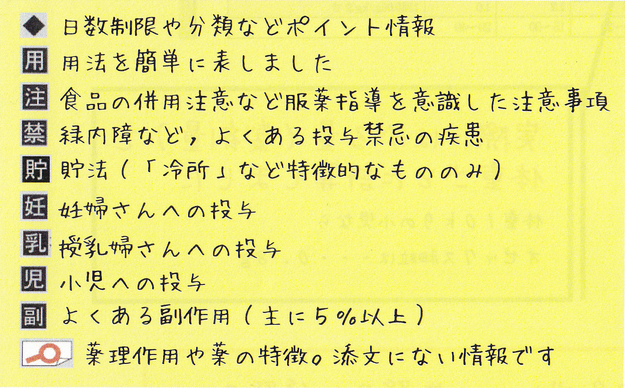 ◆ 日数制限や分類などポイント情報
用 用法を簡単に表しました
注 食品の併用注意など服薬指導を意識した注意事項
禁 緑内障など，よくある投与禁忌の疾患
貯 貯法（「冷所」など特徴的なもののみ）
妊 妊婦さんへの投与
乳 授乳婦さんへの投与
児 小児への投与
副 よくある副作用（主に5％以上）
薬理作用や薬の特徴。添文にない情報です